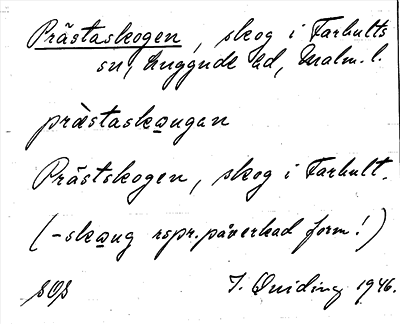 Prästaskogen, skog i Farhults
sn, Luggude hd, Malm. l.
prästaskaugan
Prästskogen, skog i Farhult.
(-skaug rspr. påverkad form!)
SOS
I. Quiding 1946.